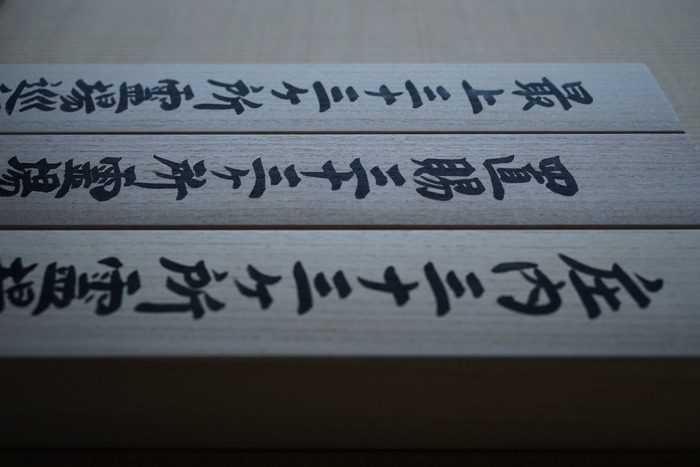 庄内三十三ヶ所霊場
置賜三十三ヶ所霊場
最上三十三ヶ所霊場巡